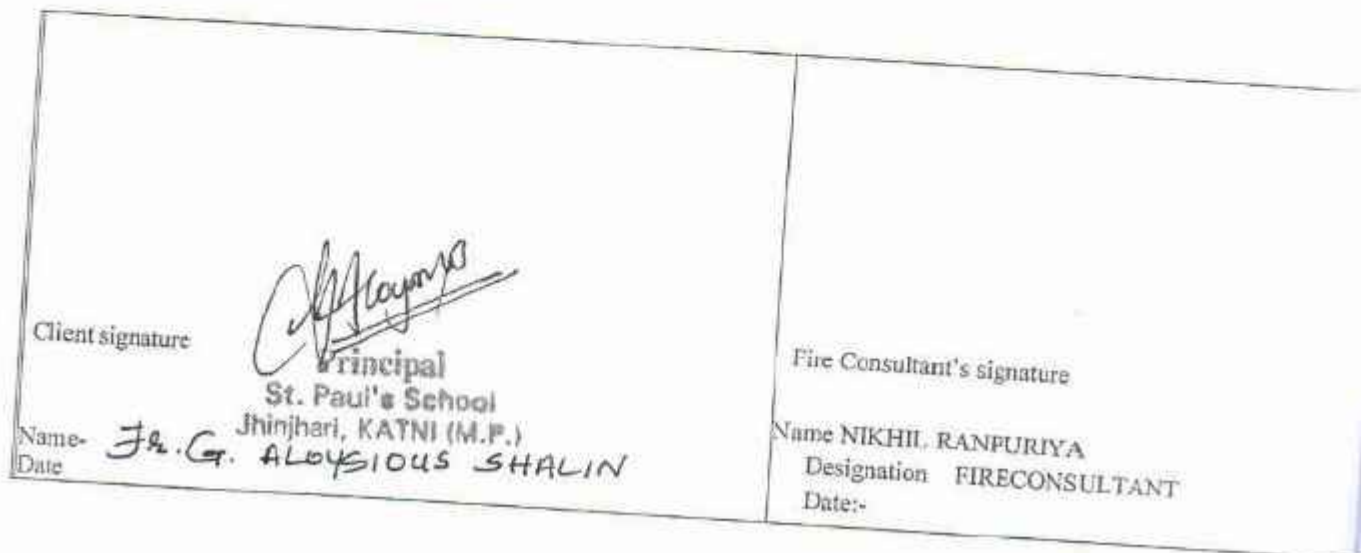 Client signature
Principal
St. Paul's School
Jhinjhari, KATNI (M.P.)
Name- Fr. G. ALOYSIOUS SHALIN
Date
Fire Consultant's signature
Name NIKHIL RANPURIYA
Designation FIRECONSULTANT
Date:-